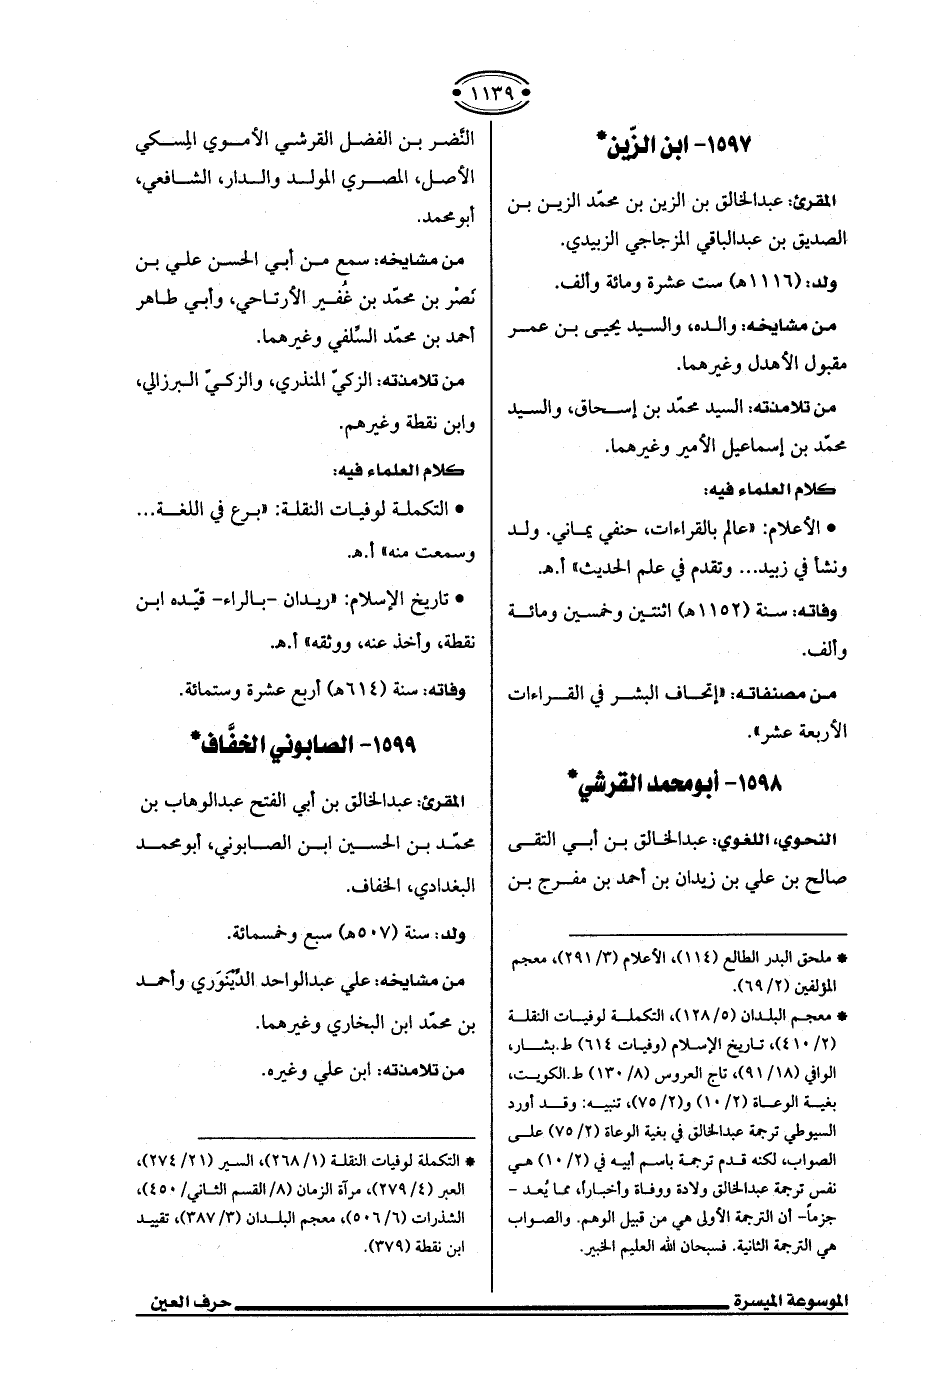 ١١٣٩
١٥٩٧- ابن الزّين*
المقرئ: عبدالخالق بن الزين بن محمّد الزين بن
الصديق بن عبدالباقي المزجاجي الزبيدي.
ولد: (١١١٦هـ) ست عشرة ومائة وألف.
من مشايخه: والده، والسيد يحيى بن عمر
مقبول الأهدل وغيرهما.
من تلامذته: السيد محمّد بن إسحاق، والسيد
محمّد بن إسماعيل الأمير وغيرهما.
كلام العلماء فيه:
• الأعلام: «عالم بالقراءات، حنفي يماني. ولد
ونشأ في زبيد... وتقدم في علم الحديث» أ.هـ.
وفاته: سنة (١١٥٢هـ) اثنتين وخمسين ومائة
وألف.
من مصنفاته: «إتحاف البشر في القراءات
الأربعة عشر».
١٥٩٨- أبو محمد القرشي*
النحوي، اللغوي: عبدالخالق بن أبي التقى
صالح بن علي بن زيدان بن أحمد بن مفرج بن
* ملحق البدر الطالع (١١٤)، الأعلام (٣/ ٢٩١)، معجم
المؤلفين (٢/ ٦٩).
* معجم البلدان (٥/ ١٢٨)، التكملة لوفيات النقلة
(٢/ ٤١٠)، تاريخ الإسلام (وفيات ٦١٤) ط.بشار،
الوافي (١٨/ ٩١)، تاج العروس (٨/ ١٣٠) ط.الكويت،
بغية الوعاة (٢/ ١٠) و(٢/ ٧٥)، تنبيه: وقد أورد
السيوطي ترجمة عبدالخالق في بغية الوعاة (٢/ ٧٥) على
الصواب، لكنه قدم ترجمة باسم أبيه في (٢/ ١٠) هي
نفس ترجمة عبدالخالق ولادة ووفاة وأخباراً، مما يُعد -
جزماً- أن الترجمة الأولى هي من قبيل الوهم. والصواب
هي الترجمة الثانية. فسبحان الله العليم الخبير.
النَّضر بن الفضل القرشي الأموي المسكي
الأصل، المصري المولد والدار، الشافعي،
أبو محمد.
من مشايخه: سمع من أبي الحسن علي بن
نَصْر بن محمّد بن غُفير الأرتاحي، وأبي طاهر
أحمد بن محمّد السِّلفي وغيرهما.
من تلامذته: الزكيّ المنذري، والزكيّ البرزالي،
وابن نقطة وغيرهم.
كلام العلماء فيه:
• التكملة لوفيات النقلة: «برع في اللغة...
وسمعت منه» أ.هـ.
• تاريخ الإسلام: «ريدان -بالراء- قيّده ابن
نقطة، وأخذ عنه، ووثقه» أ.هـ.
وفاته: سنة (٦١٤هـ) أربع عشرة وستمائة.
١٥٩٩- الصابوني الخفَّاف*
المقرئ: عبدالخالق بن أبي الفتح عبدالوهاب بن
محمّد بن الحسين ابن الصابوني، أبو محمد
البغدادي، الخفاف.
ولد: سنة (٥٠٧هـ) سبع وخمسمائة.
من مشايخه: علي عبدالواحد الدِّيْنَوَري وأحمد
بن محمّد ابن البخاري وغيرهما.
من تلامذته: ابن علي وغيره.
* التكملة لوفيات النقلة (١/ ٢٦٨)، السير (٢١/ ٢٧٤)،
العبر (٤/ ٢٧٩)، مرآة الزمان (٨/ القسم الثاني/ ٤٥٠)،
الشذرات (٦/ ٥٠٦)، معجم البلدان (٣/ ٣٨٧)، تقييد
ابن نقطة (٣٧٩).
الموسوعة الميسرة
حرف العين